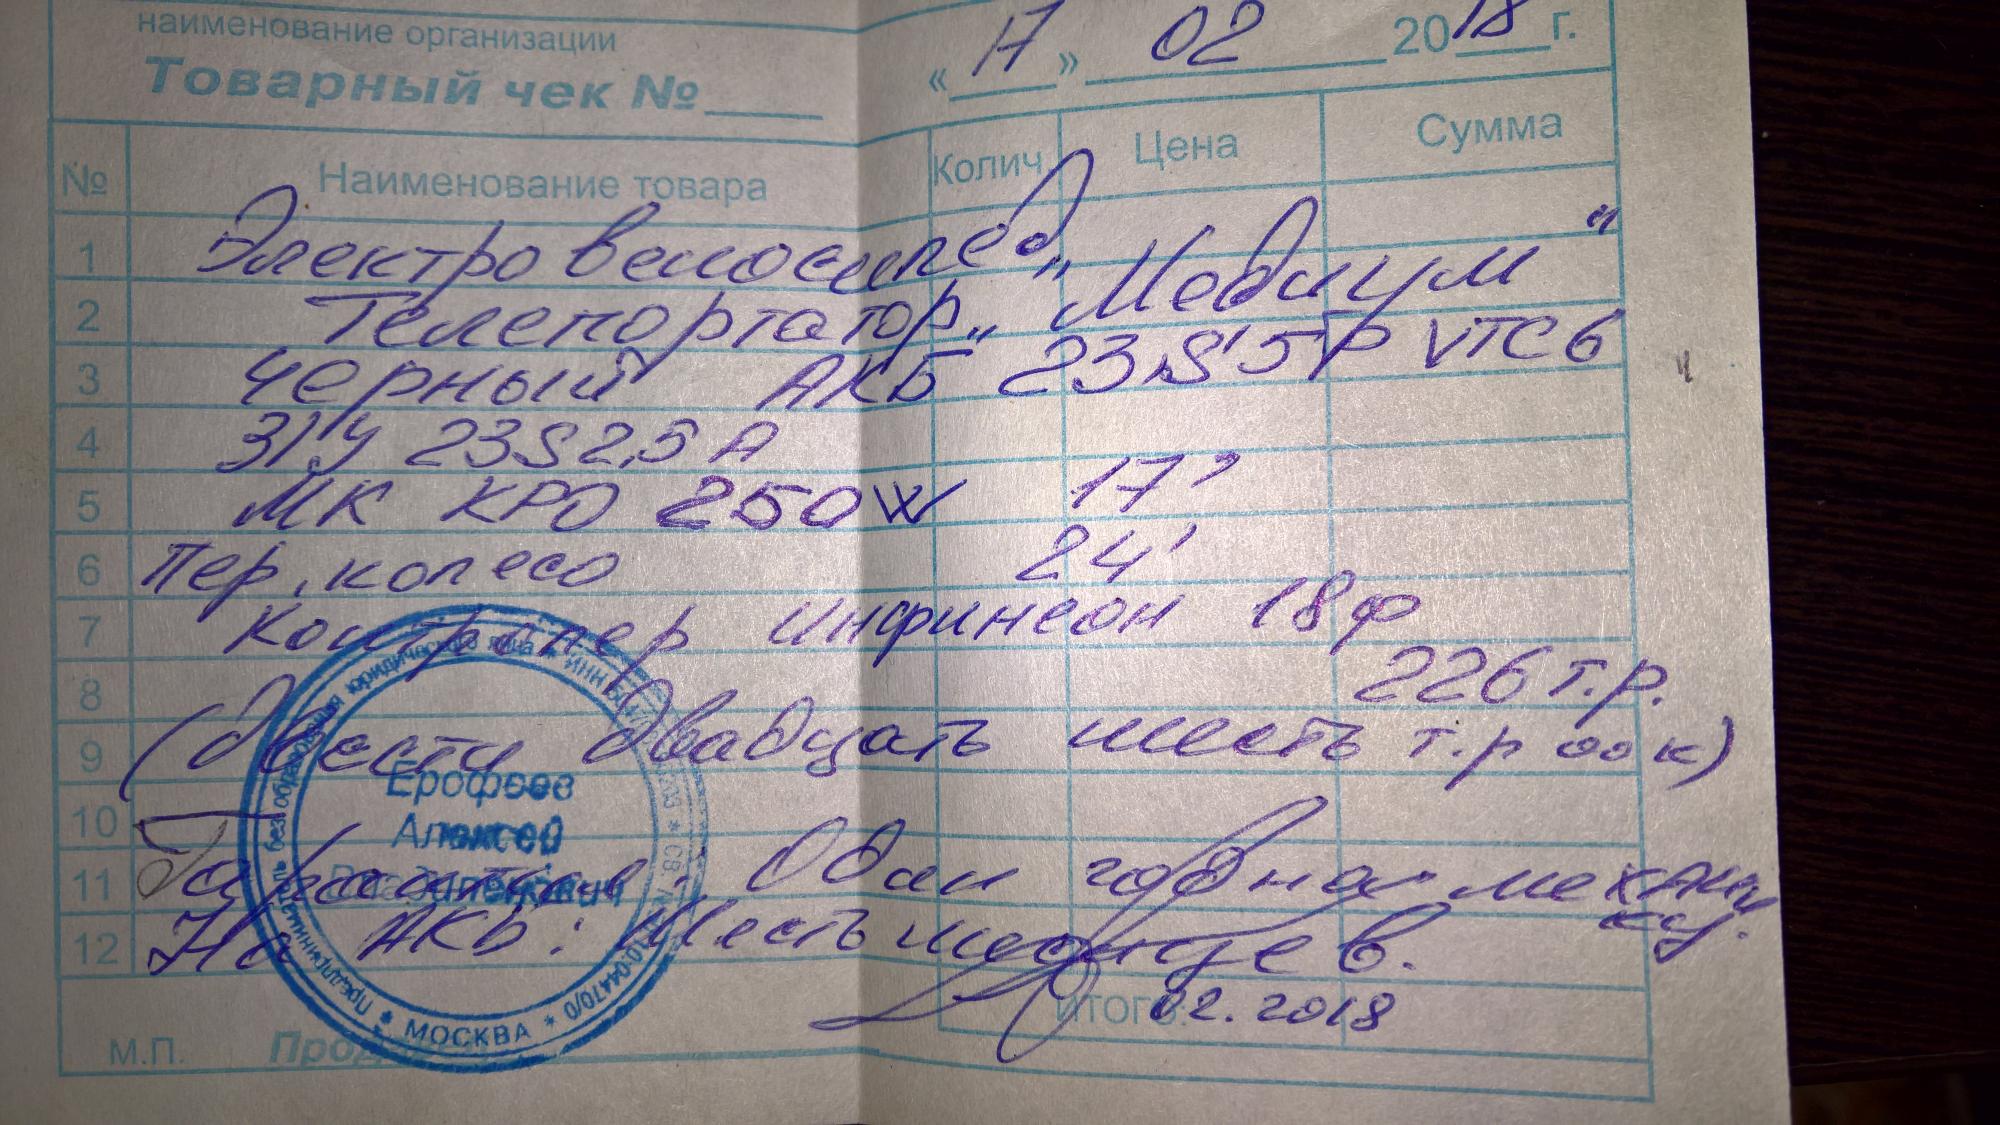 наименование организации
« 17 » 02 2018 г.
Товарный чек №
№ Наименование товара Колич. Цена Сумма
1 Электро велосипед
2 Телепортатор „Медиум"
3 Черный АКБ 23S5P VTC6
4 З/У 23S 2,5 А
5 МК КРО 250W 17'
6 Пер. колесо 24'
7 Контролер инфинеон 18ф
8 226 т.р.
9 (Двести двадцать шесть т.р 00 к)
10
11 Гарантия: Один год на механику.
12 На АКБ: Шесть месяцев.
ИТОГО: 02.2018
М.П.
Предприниматель без образования юридического лица * ИНН
Ерофеев
Алексей
* МОСКВА *